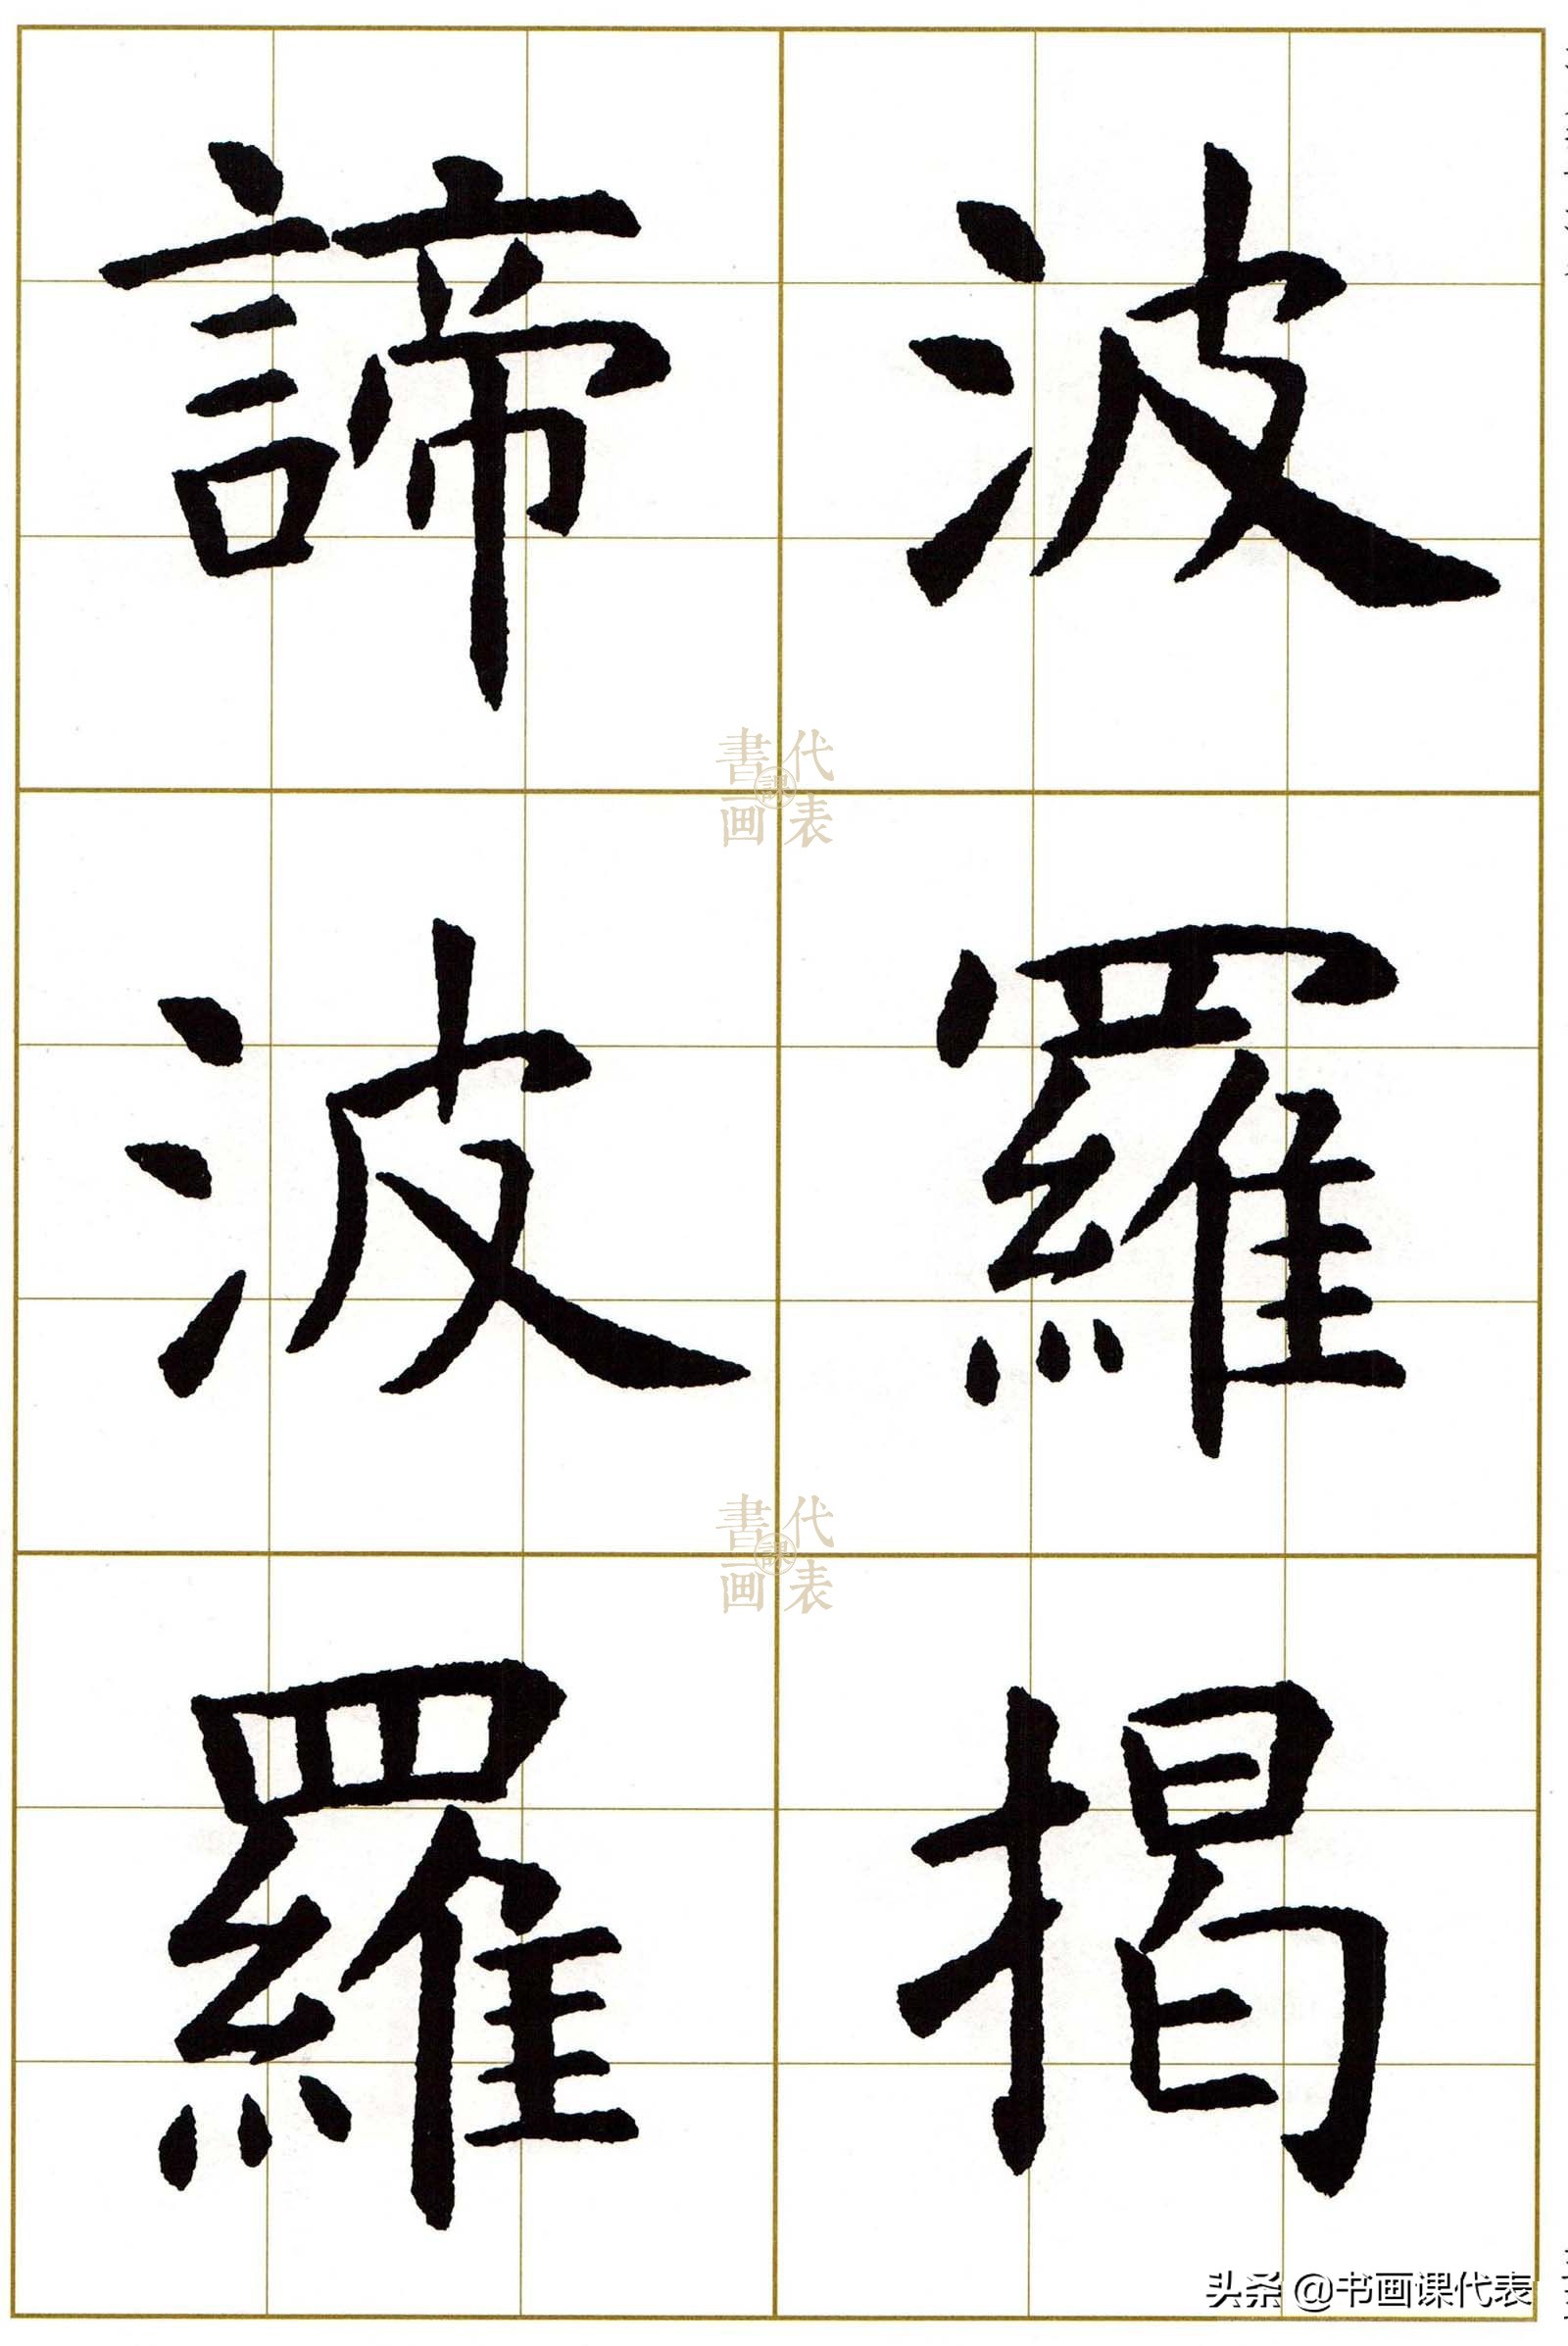 波羅揭
諦波羅
書画課代表
書画課代表
头条 @书画课代表